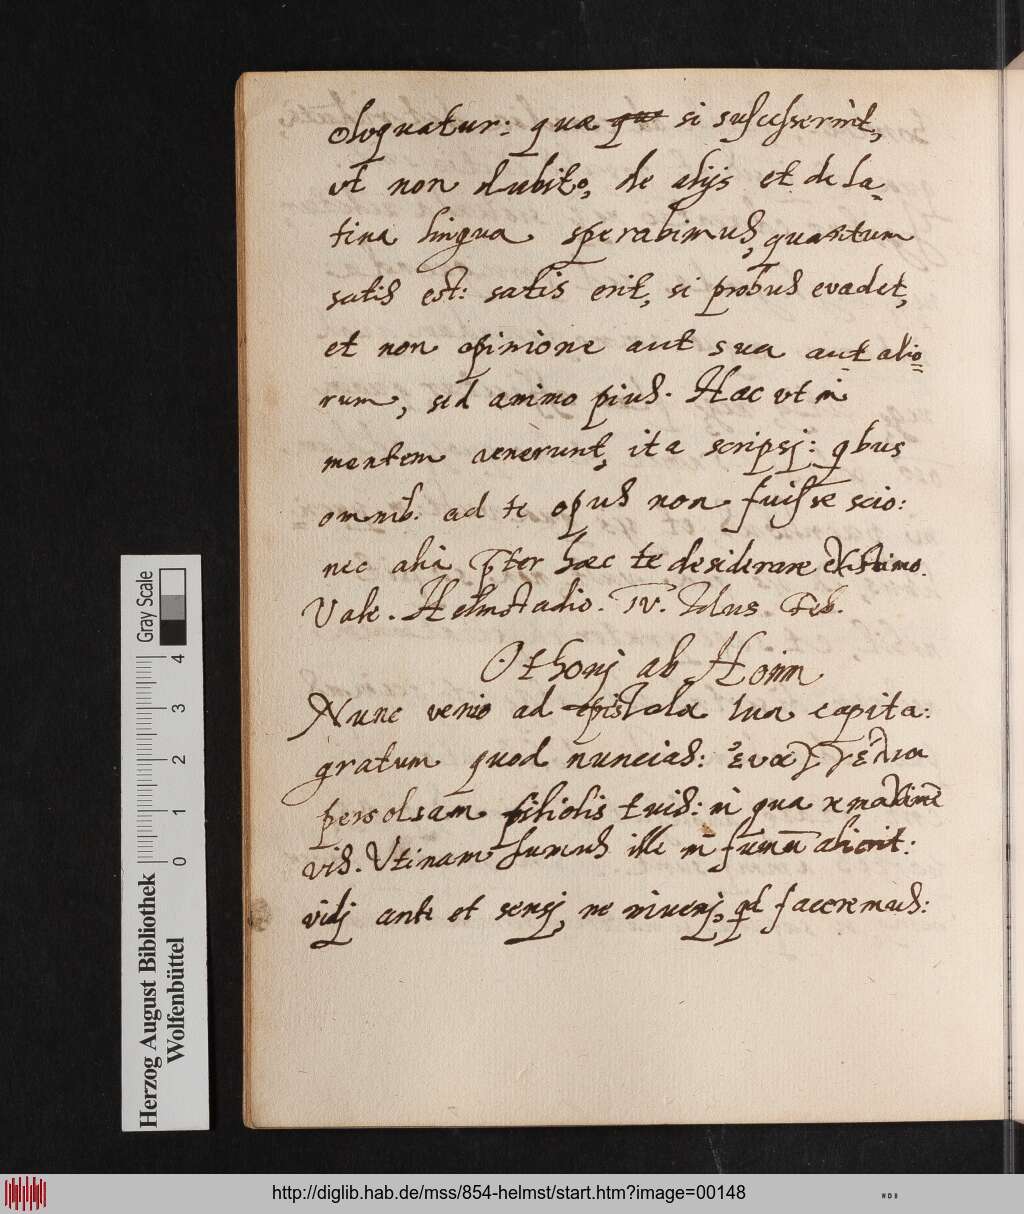 eloquatur: quae qu si suscesserint,
vt non dubito, de alijs et de la-
tina lingua sperabimus, quantum
satis est: satis erit, si probus evadet,
et non opinione aut sua aut alio=
rum, sed animo pius. Haec vt in
mentem venerunt, ita scripsj: qbus
omnib. ad te opus non fuisse scio:
nec alia pter haec te desiderare existimo.
Vale. Helmstadio. IV. Idus Feb.
Othonj ab Hoim
Nunc venio ad epistolae tua capita:
gratum quod nuncias: ἐυαγγέλια
persolvam filiolis tuis: in qua re maxime
vis. Vtinam fumus ille in alierit:
vidj ante et sensj, ne invenj, qd faceremus:
Herzog August Bibliothek
Wolfenbüttel
0 1 2 3 4
Gray Scale
http://diglib.hab.de/mss/854-helmst/start.htm?image=00148